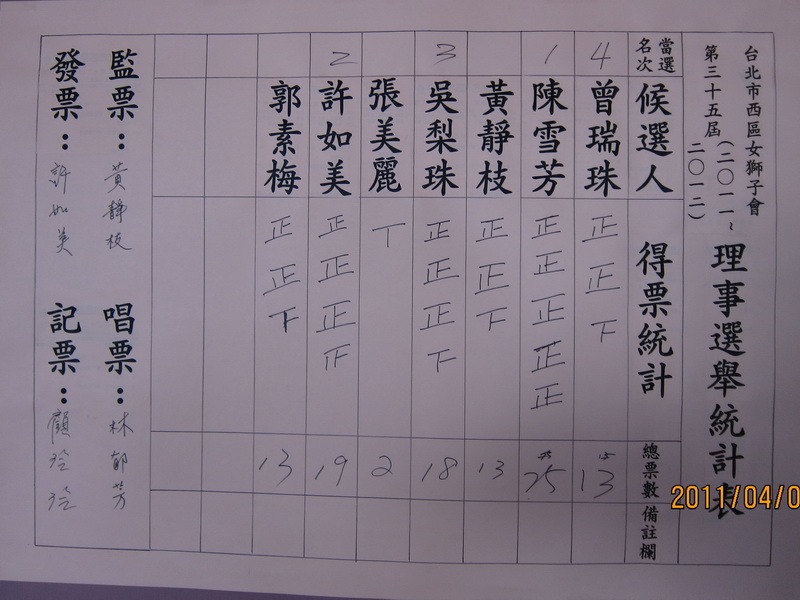 台北市西區女獅子會
第三十五屆(二〇一一~二〇一二)
理事選舉統計表
當選名次 候選人 得票統計 總票數 備註欄
4 曾瑞珠 正正下 13
1 陳雪芳 正正正正正 25
黃靜枝 正正下 13
3 吳梨珠 正正正下 18
張美麗 丅 2
2 許如美 正正正 19
郭素梅 正正下 13
監票:黃靜枝 唱票:林郁芳
發票:許如美 記票:顧
2011/04/0